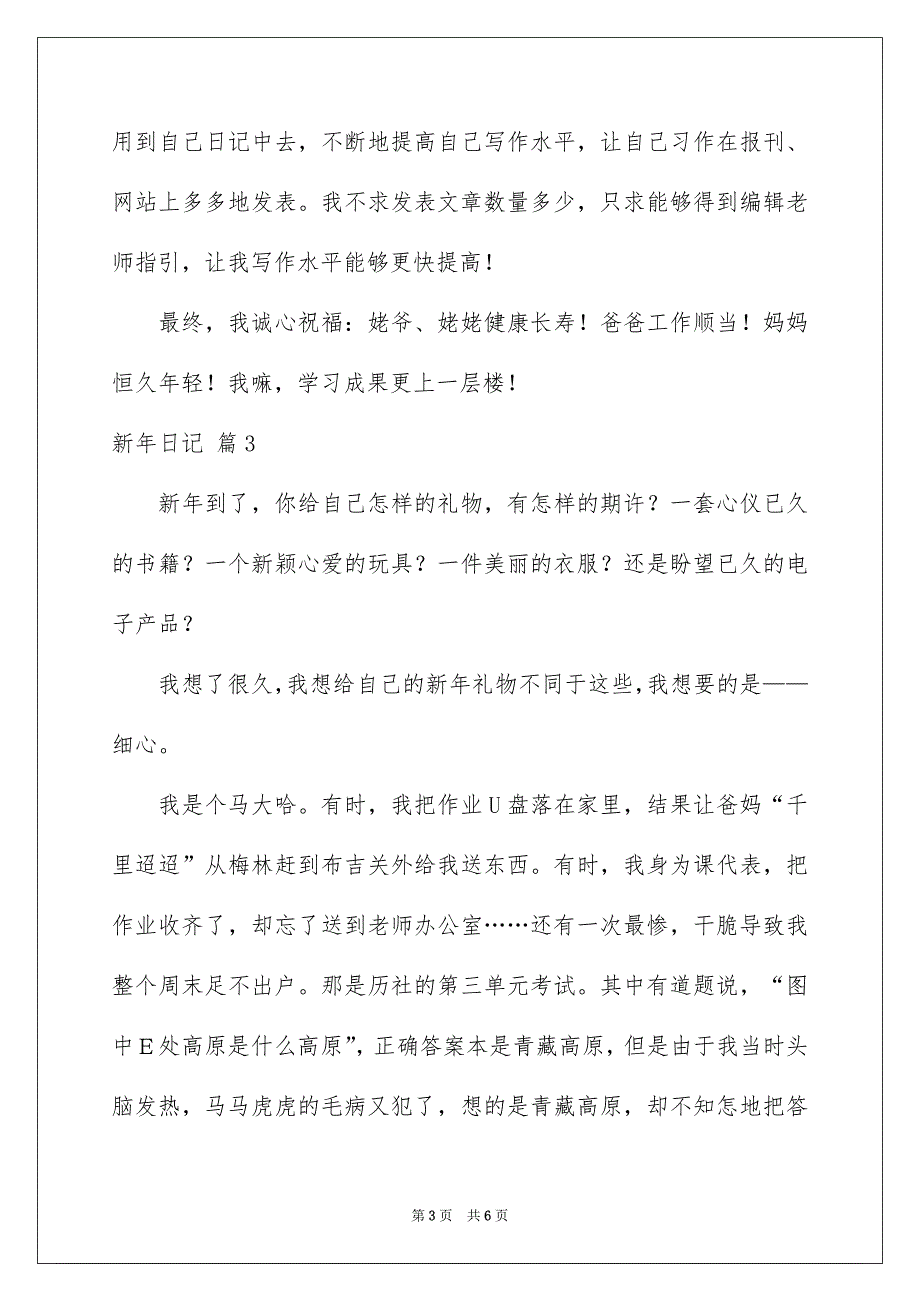 用到自己日记中去，不断地提高自己写作水平，让自己习作在报刊、
网站上多多地发表。我不求发表文章数量多少，只求能够得到编辑老
师指引，让我写作水平能够更快提高！
最终，我诚心祝福：姥爷、姥姥健康长寿！爸爸工作顺当！妈妈
恒久年轻！我嘛，学习成果更上一层楼！
新年日记 篇3
新年到了，你给自己怎样的礼物，有怎样的期许？一套心仪已久
的书籍？一个新颖心爱的玩具？一件美丽的衣服？还是盼望已久的电
子产品？
我想了很久，我想给自己的新年礼物不同于这些，我想要的是——
细心。
我是个马大哈。有时，我把作业U盘落在家里，结果让爸妈“千
里迢迢”从梅林赶到布吉关外给我送东西。有时，我身为课代表，把
作业收齐了，却忘了送到老师办公室……还有一次最惨，干脆导致我
整个周末足不出户。那是历社的第三单元考试。其中有道题说，“图
中E处高原是什么高原”，正确答案本是青藏高原，但是由于我当时头
脑发热，马马虎虎的毛病又犯了，想的是青藏高原，却不知怎地把答
第3页 共6页